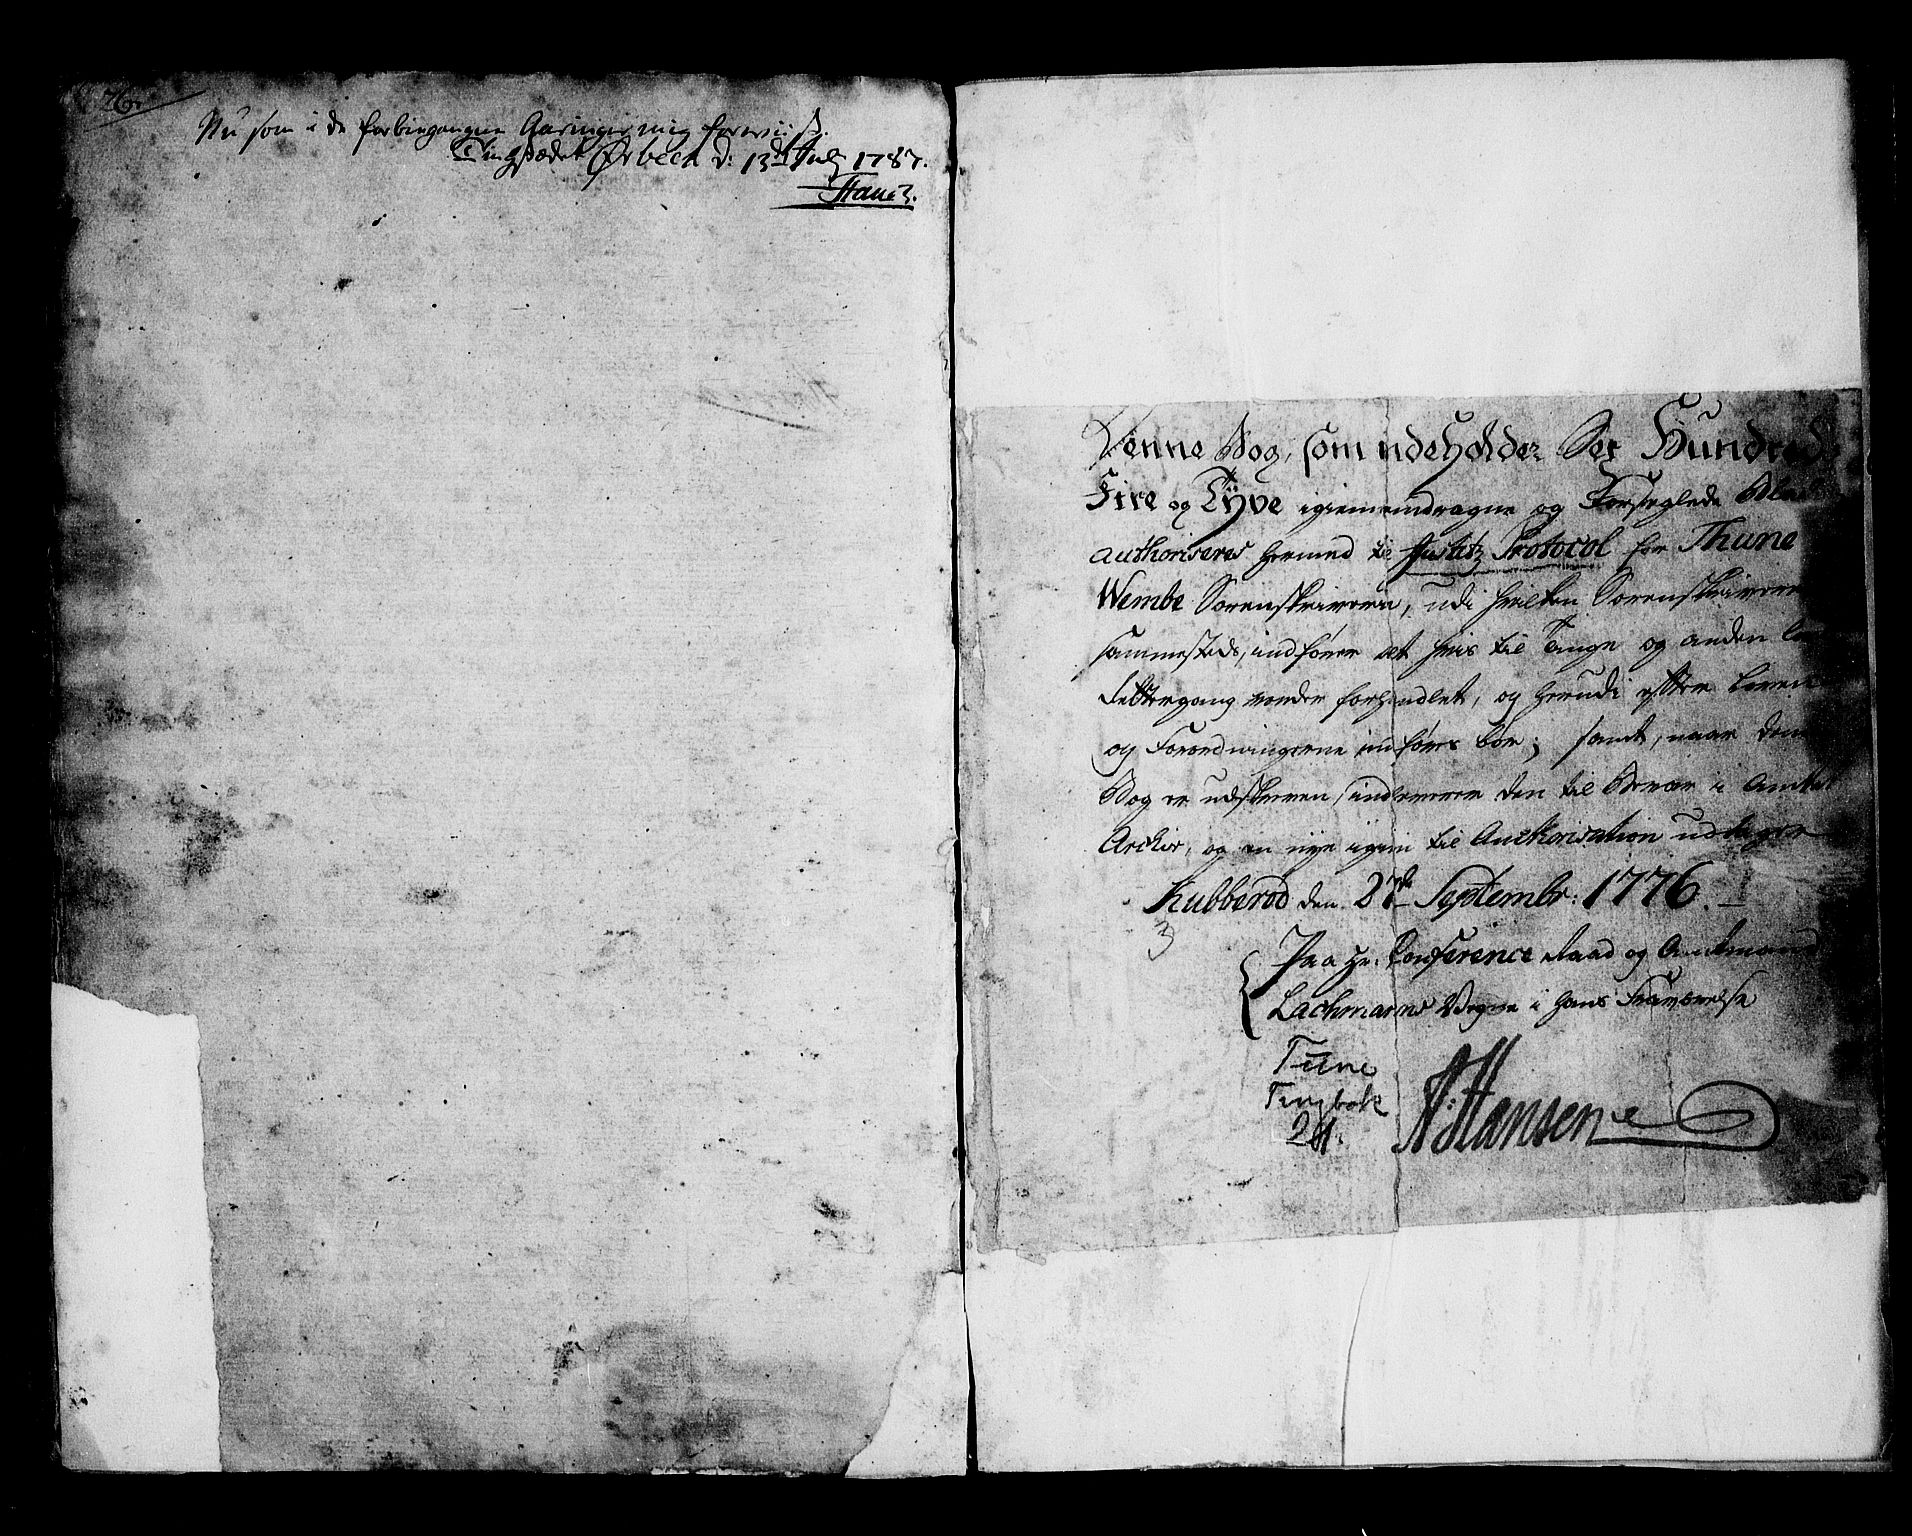 Nu som i de forbengangne Aaringer mig foreviist.
Tingstædet Ørbech d: 13de July 1787.
Denne Bog, som indeholder Sex Hundrede
Fire og Tyve igiennemdragne og Forseglede Blade
authoriseres hermed til Justitz Protocol for Thune
Wembe Sorenskriverie, udi hvilken Sorenskriveren
sammesteds, indfører alt hvis til Tinge og anden
Rettergang vorder forhandlet, og herudi efter Loven
og Forordningerne indføres bør; samt, naar denne
Bog er udskreven, indleverer den til Bevar i Amtets
Archiv, og en nye igien til Authorisation udtager
Hubberod den 27de Septembr: 1776.
3
Paa Hr. Conference Raad og Amtmand
Lachmanns Vegne i hans Fraværelse
Tune
Tingbok
24.
A: Hansen